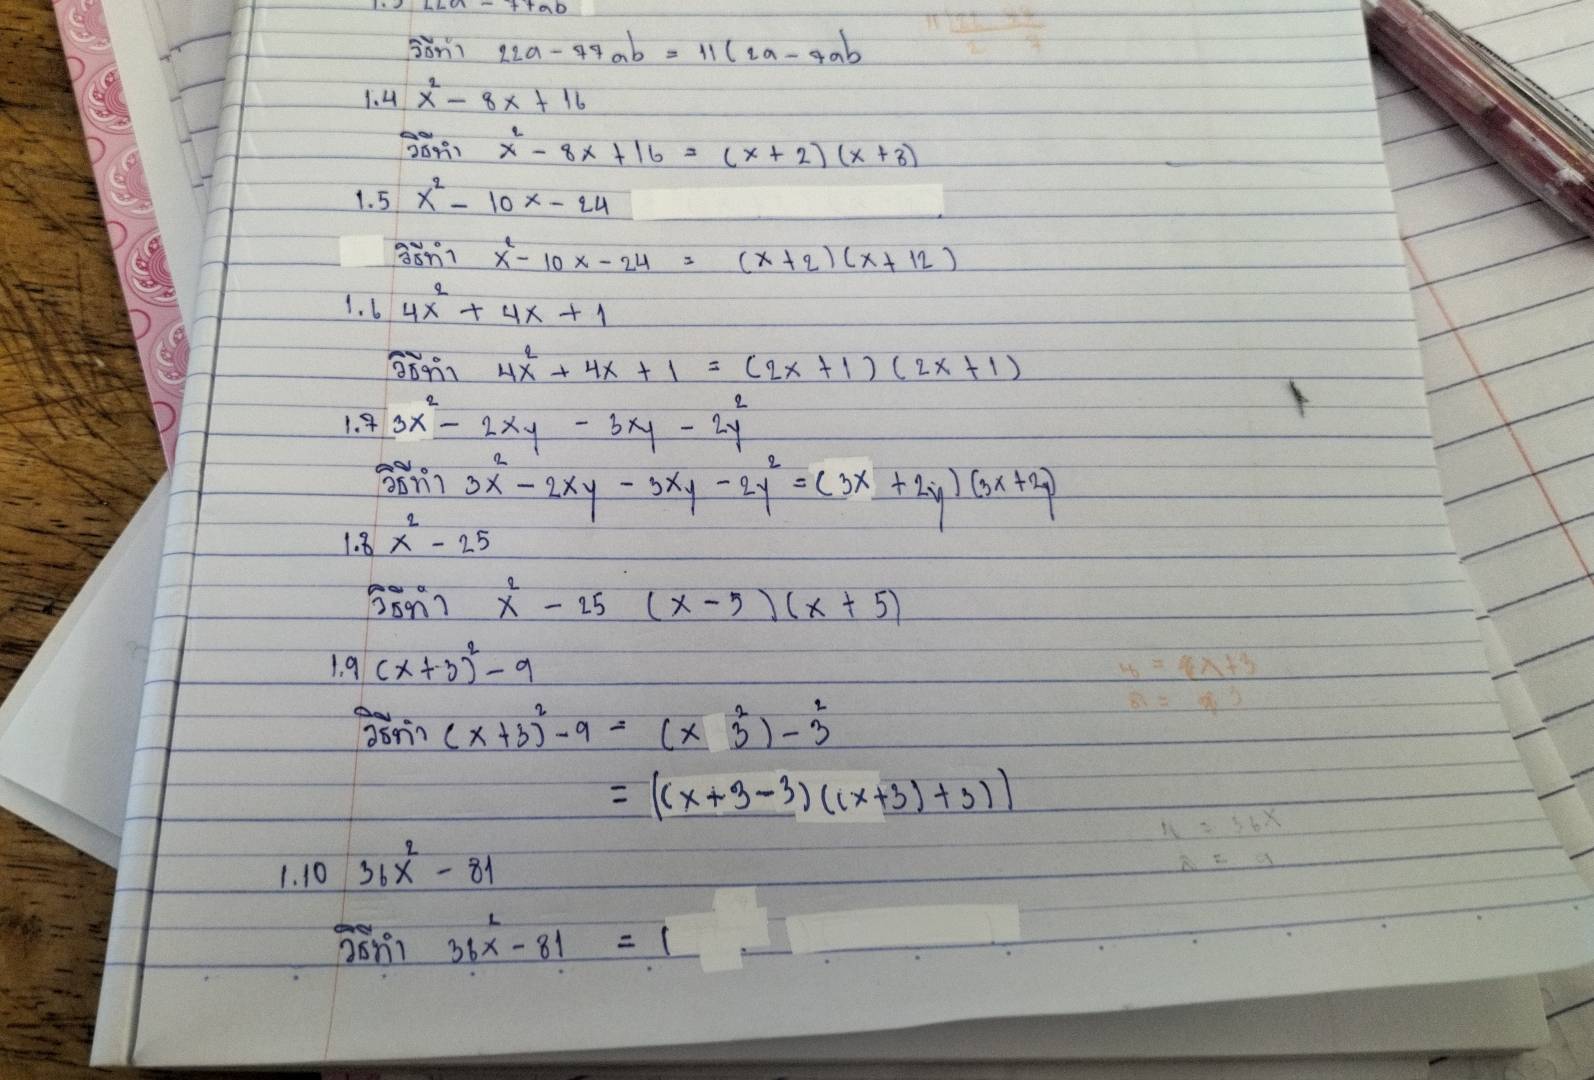 1.3 22a - 77ab
วิธีทำ 22a - 77ab = 11(2a - 7ab
1.4 x² - 8x + 16
วิธีทำ x² - 8x + 16 = (x + 2)(x + 8)
1.5 x² - 10x - 24
วิธีทำ x² - 10x - 24 = (x + 2)(x + 12)
1.6 4x² + 4x + 1
วิธีทำ 4x² + 4x + 1 = (2x + 1)(2x + 1)
1.7 3x² - 2xy - 3xy - 2y²
วิธีทำ 3x² - 2xy - 3xy - 2y² = (3x + 2y)(3x + 2y)
1.8 x² - 25
วิธีทำ x² - 25 (x - 5)(x + 5)
1.9 (x + 3)² - 9
วิธีทำ (x + 3)² - 9 = (x 3²) - 3²
= ((x + 3 - 3)((x + 3) + 3))
1.10 36x² - 81
วิธีทำ 36x² - 81 = (
น = 36x
ล = 9